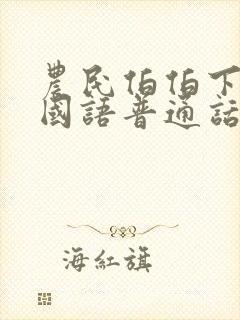 農民伯伯下
國語普通話
海紅旗